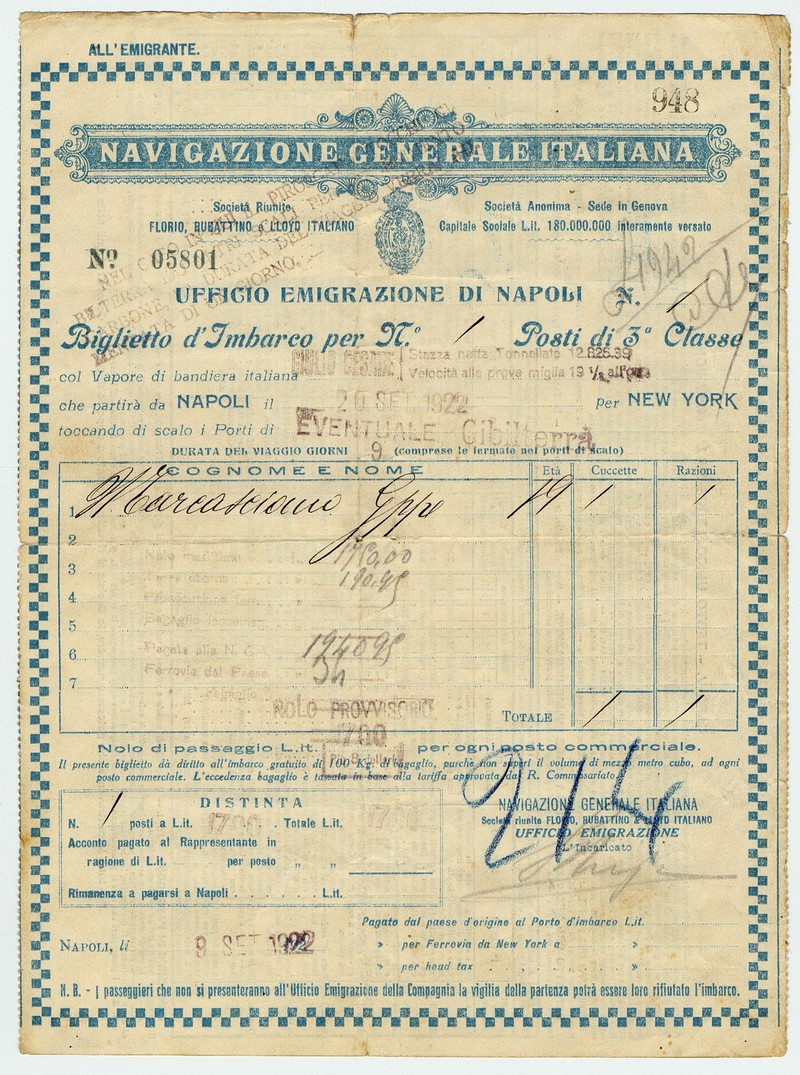 ALL'EMIGRANTE.
948
NAVIGAZIONE GENERALE ITALIANA
Società Riunite
FLORIO, RUBATTINO & LLOYD ITALIANO
Società Anonima - Sede in Genova
Capitale Sociale L.it. 180.000.000 interamente versato
Nº 05801
UFFICIO EMIGRAZIONE DI NAPOLI N. 1
Biglietto d'Imbarco per N.º 1 Posti di 3ª Classe
col Vapore di bandiera italiana GIULIO CESARE
Stazza netta, Tonnellate 12.826.99
Velocità alle prove miglia 19 ½ all'ora
che partirà da NAPOLI il 20 SET 1922 per NEW YORK
toccando di scalo i Porti di EVENTUALE Gibilterra
DURATA DEL VIAGGIO GIORNI 9 (comprese le fermate nei porti di scalo)
COGNOME E NOME Età Cuccette Razioni
1 Marcasciano Gppe 19 1 1
2
Nolo marittimo 1750,00
3 190.95
4
5
6 1940 95
Ferrovia dal Paese
7
NOLO PROVVISORIO
TOTALE 1 1
1700
Nolo di passaggio L.it. per ogni posto commerciale.
Il presente biglietto dà diritto all'imbarco gratuito di 100 Kg. di bagaglio, purchè non superi il volume di mezzo metro cubo, ad ogni
posto commerciale. L'eccedenza bagaglio è tassata in base alla tariffa approvata dal R. Commissariato
DISTINTA
N. 1 posti a L.it. 1700. Totale L.it.
Acconto pagato al Rappresentante in
ragione di L.it. per posto " "
Rimanenza a pagarsi a Napoli . . . . . . L.it.
NAVIGAZIONE GENERALE ITALIANA
Società riunite FLORIO, RUBATTINO & LLOYD ITALIANO
UFFICIO EMIGRAZIONE
L'Incaricato
214
Pagato dal paese d'origine al Porto d'imbarco L.it.
NAPOLI, lì 9 SET 1922
» per Ferrovia da New York a »
» per head tax . . . . . »
N. B. - I passeggieri che non si presenteranno all'Ufficio Emigrazione della Compagnia la vigilia della partenza potrà essere loro rifiutato l'imbarco.